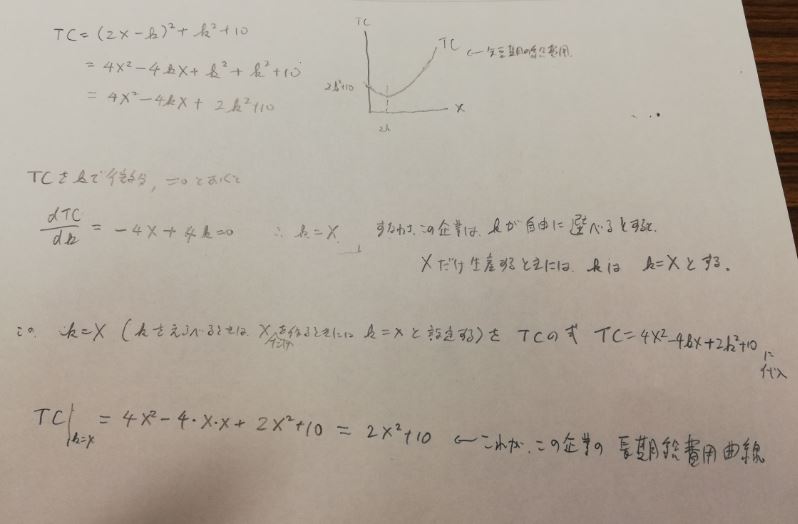 TC = (2X - k)² + k² + 10
= 4X² - 4kX + k² + k² + 10
= 4X² - 4kX + 2k² + 10
TC
TC ← 短期の総費用
2k²+10
X
TCをkで微分, =0とおくと
dTC/dk = -4X + 4k = 0 ∴ k = X
すなわち、この企業は、kが自由に選べるとすると、
Xだけ生産するときには、kは k=Xとする。
この k=X (kをえらべるときは、Xだけ作るときには k=Xと設定する)を TCの式 TC = 4X² - 4kX + 2k² + 10 に代入
TC|k=X = 4X² - 4・X・X + 2X² + 10 = 2X² + 10 ← これが、この企業の 長期総費用曲線